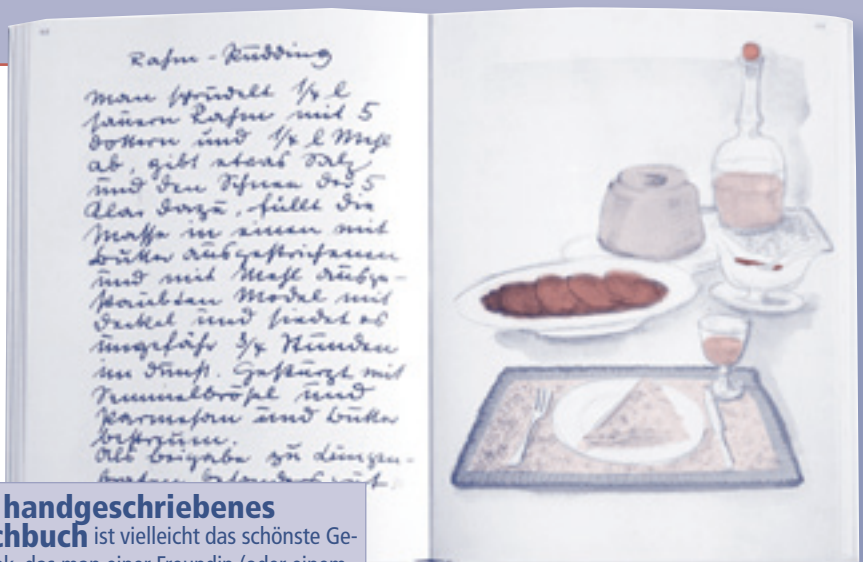 Rahm-Pudding
Man sprudelt 1/4 l
sauern Rahm mit 5
Dottern und 1/4 l Mehl
ab, gibt etwas Salz
und den Schnee der 5
Klar dazu, füllt die
Masse in einen mit
Butter ausgestrichenen
und mit Mehl ausge-
staubten Model mit
Deckel und siedet es
ungefähr 3/4 Stunden
im Dunst. Gestürzt mit
Semmelbrösel und
Parmesan und Butter
bestreuen.
Als Beigabe zu Lungen-
braten besonders gut.
handgeschriebenes
chbuch ist vielleicht das schönste Ge-
das man einer Freundin (oder einem